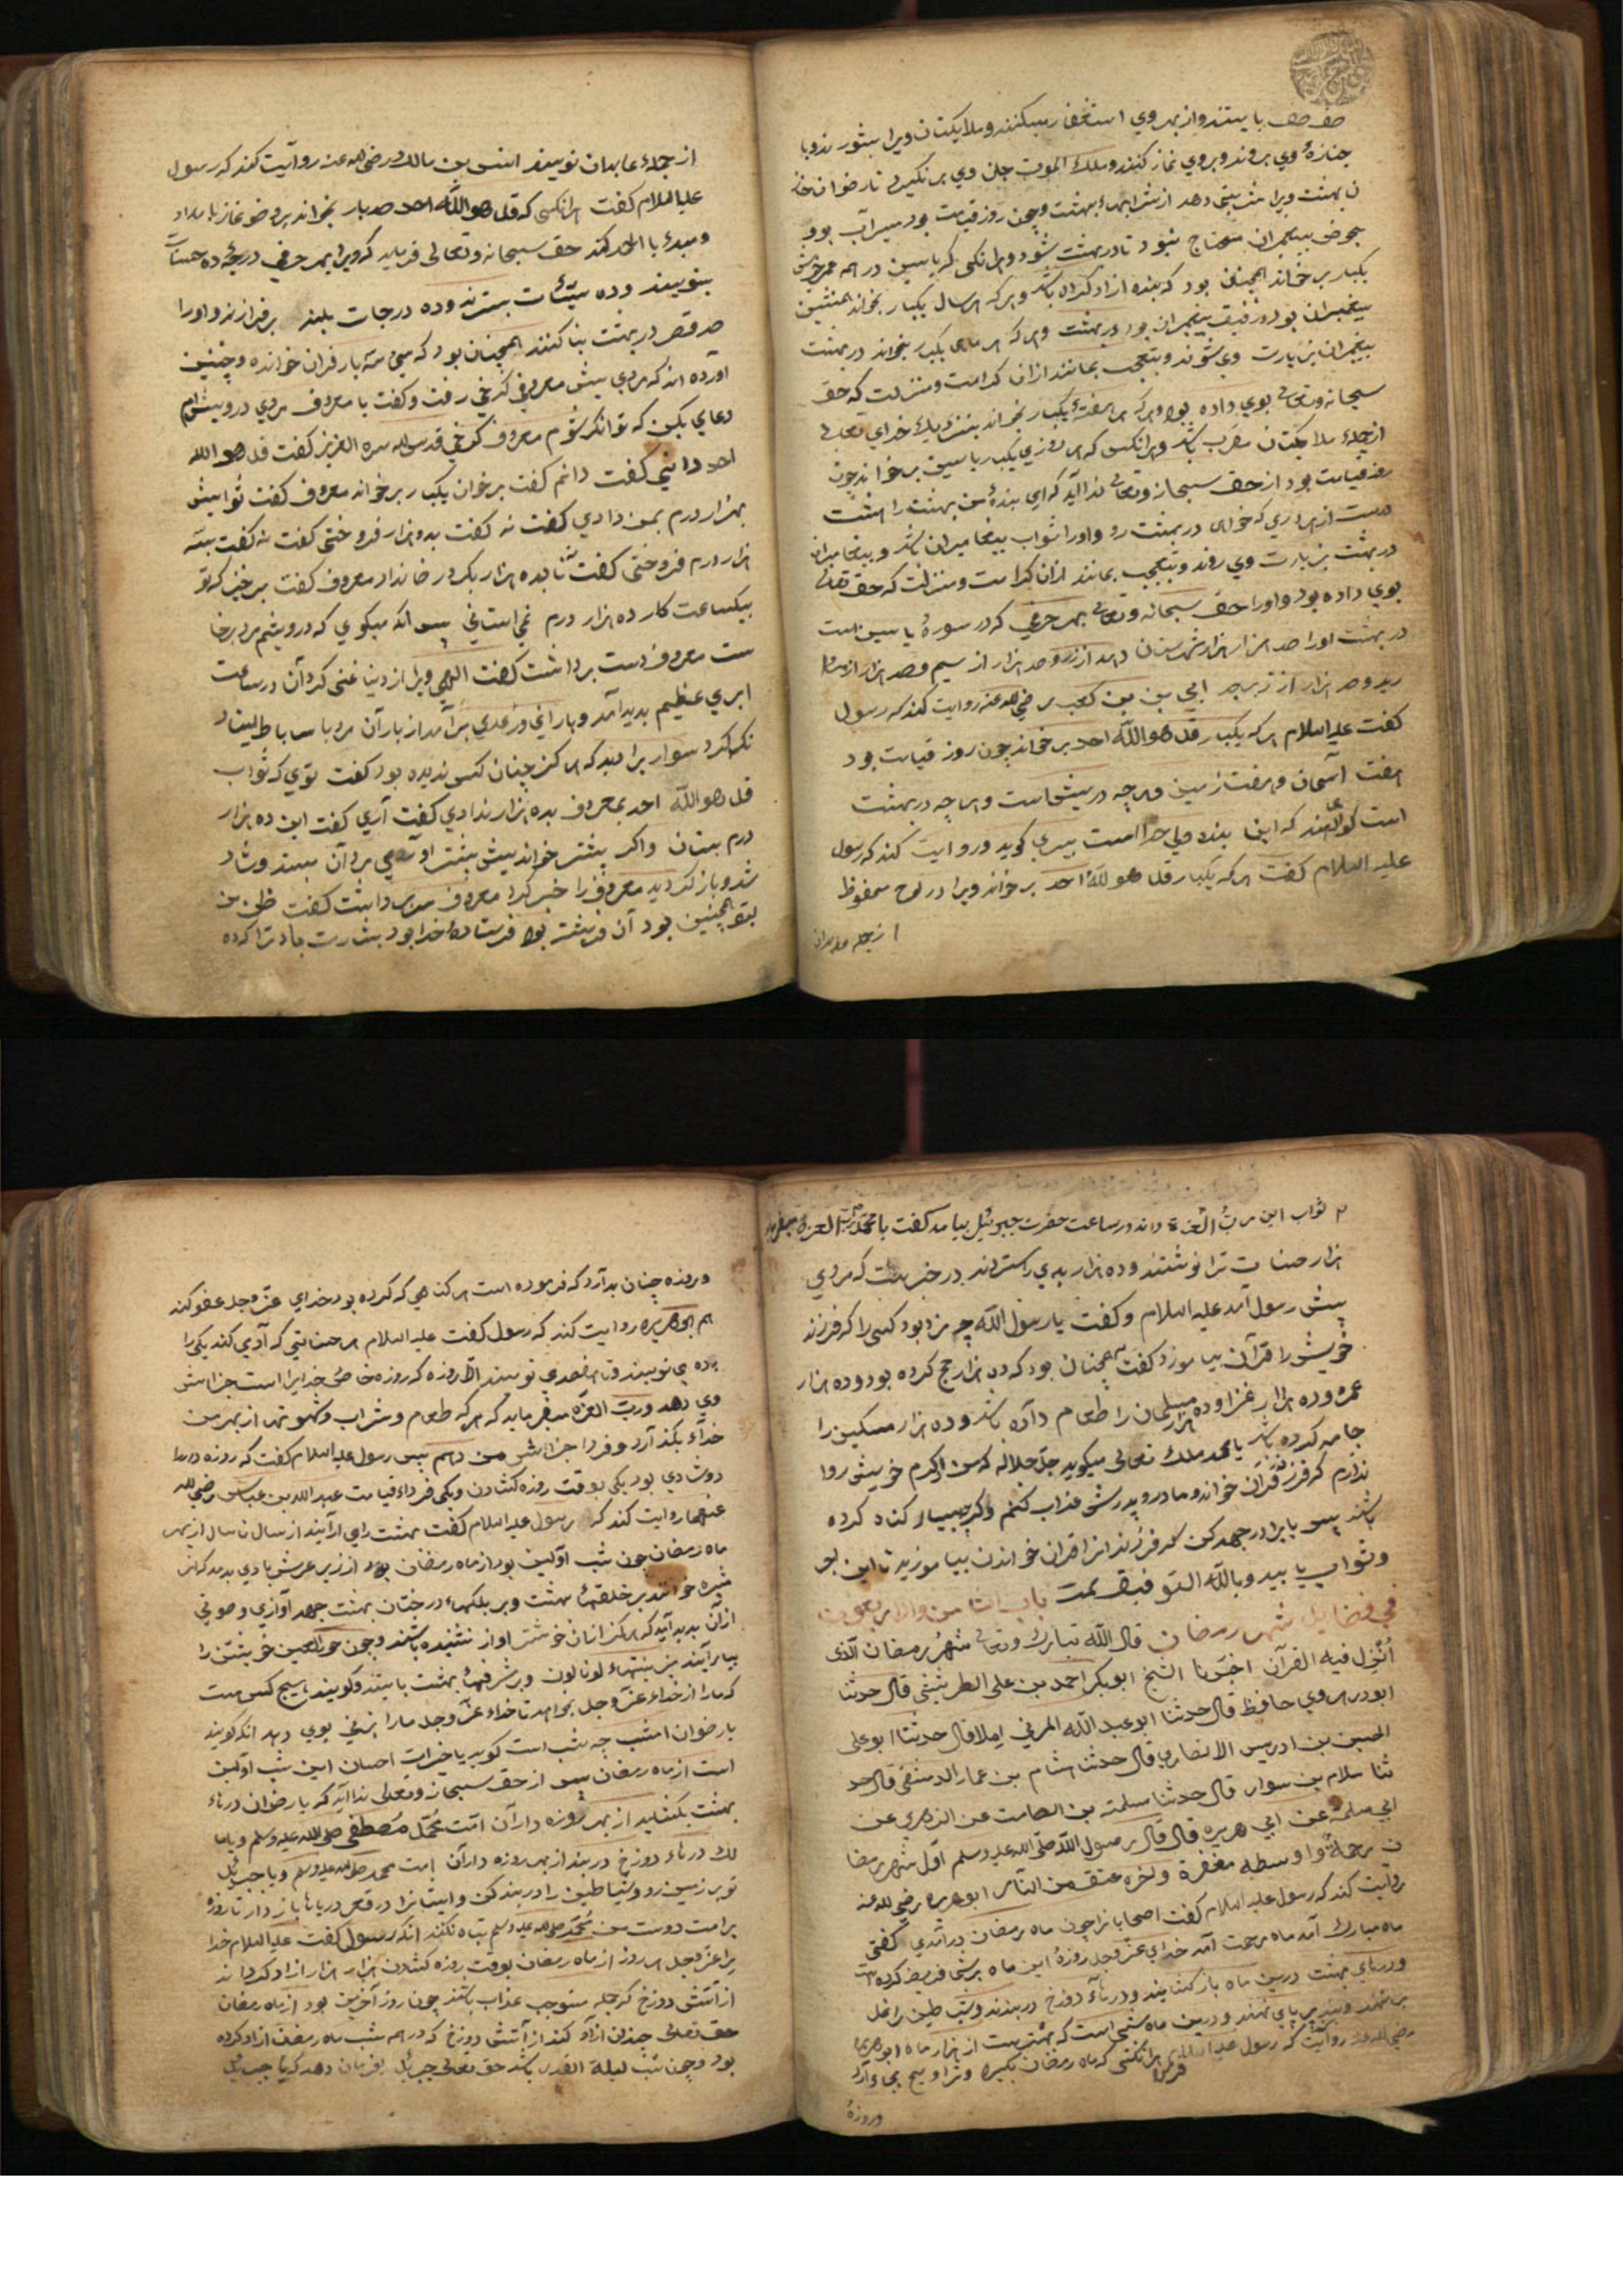 صف صف بایستند و از بهر وی استغفار میکنند و ملایکتان ویرا بشورند و با
جنازهٔ وی بروند و بر وی نماز کنند و ملک الموت جان وی برنگیرد تا رضوان خا
زن بهشت ویرا شربتی دهد از شرابهاء بهشت و چون روز قیامت بود سیرآب بود
بحوض پیغمبران محتاج نبود تا در بهشت شود و هرانکس که یاسین در همه عمر خویش
یکبار برخواند همچنان بود که بنده آزاد کرده باشد و هر که هر سال یکبار بخواند همنشین
پیغمبران بود و رفیق پیغمبران بود در بهشت و هر که هر ماهی یکبار بخواند در بهشت
پیغمبران بزیارت وی شوند و بتعجب بمانند از ان کرامت و منزلت که حق
سبحانه وتعالی بوی داده بود و هر که هر هفتهٔ یکبار بخواند بنزدیک خدای تعالی
از جملهٔ ملایکتان مقرب باشد و هرانکس که هر روزی یکبار یاسین برخواند چون
روز قیامت بود از حق سبحانه وتعالی ندا آید که ای بندهٔ من بهشت را هشت
درست از هر دری که خواهی در بهشت رو و او را ثواب پیغامبران باشد و پیغامبران
در بهشت بزیارت وی روند و بتعجب بمانند از ان کرامت و منزلت که حق تعالی
بوی داده بود و او را حق سبحانه وتعالی بهر حرفی که در سورهٔ یاسین است
در بهشت او را صد هزار هزار شهرستان دهد از زر و صد هزار از سیم و صد هزار از مروا
رید و صد هزار از زبرجد ابی بن کعب رضی الله عنه روایت کند که رسول
کفت علیه السلام هر که یکبار قل هو الله احد برخواند چون روز قیامت بود
هفت آسمان و هفت زمین و هر چه در پیش است و هر چه در بهشت
است کواهی دهند که این بنده ولی خدا است بیری کوید و روایت کند که رسول
علیه السلام کفت هر که یکبار قل هو الله احد برخواند ویرا در لوح محفوظ
از جمله عابدان
از جملهٔ عابدان نویسند انس بن مالک رضی الله عنه روایت کند که رسول
علیه السلام کفت هرانکس که قل هو الله احد صد بار بخواند بر وضو نماز بامداد
ومبدء با الحمد کند حق سبحانه وتعالی فرماید که ویرا بهر حرفی درجهٔ ده حسنات
بنویسند و ده سیئات بسترند و ده درجات بلند برفرازند و او را
صد قصر در بهشت بنا کنند همچنان بود که سی سه بار قران خوانده و چنین
آورده اند که مردی پیش معروف کرخی رفت و کفت یا معروف مردی درویشم
دعای بکن که توانکر شوم معروف کرخی قدس الله سره العزیز کفت قل هو الله
احد دانی کفت دانم کفت برخوان یکبار برخواند معروف کفت ثوابش
بهزار درم بمن دادی کفت نه کفت بدو هزار فروختی کفت نه کفت بسه
هزار درم فروختی کفت نه تا بده هزار بکرد رضا نداد معروف کفت برخیز که تو
بیکساعت کار ده هزار درم نمی استانی پس انکه میکوی که درویشم مرد برخا
ست معروف دست برداشت کفت الهی ویرا از دنیا غنی کردان در ساعت
ابری عظیم بدید آمد و بارانی و رعدی برآمد از باران مرد با ساباط ایستاد
نکه کرد سواری را دید که هرکز چنان کس ندیده بود کفت توی که ثواب
قل هو الله احد بمعروف بده هزار ندادی کفت آری کفت این ده هزار
درم بستان و اکر بیشتر خواند بیش بیشتر او همی مرد آن بستد و شاد
شد و باز کردید معروف را خبر کرد معروف سر برداشت کفت ظن من
بتو همچنین بود آن فرشته بود فرستادهٔ خدا بود بشارت باد ترا که ده
ثواب این رب العزة داند در ساعت حضرت جبرئیل بیامد کفت یا محمد رب العزة میفرماید
هزار حسنات ترا نوشتند و ده هزار بدی را ستردند در خبر است که مردی
پیش رسول آمد علیه السلام و کفت یا رسول الله چه مزد بود کسی را که فرزند
خویش را قرآن بیاموزد کفت همچنان بود که ده هزار حج کرده بود و ده هزار
عمره و ده هزار غزا و ده هزار مسلمان را طعام داده باشد و ده هزار مسکین را
جامه کرده باشد یا محمد ملک تعالی میکوید جل جلاله که من از کرم خویش روا
ندارم که فرزند قران خواند و مادر و پدرش عذاب کنم و اکر چه بسیار کناه کرده
باشد پس یا برادر جهد کن که فرزندانرا قران خواندن بیاموزید تا این بو
وثواب یابید وبالله التوفیق تمت باب الثامن والاربعون
فی فضایل شهر رمضان قال الله تبارک وتعالی شهر رمضان الذی
انزل فیه القرآن اخبرنا الشیخ ابو بکر احمد بن علی الطریثیثی قال حدثنا
ابوذر هروی حافظ قال حدثنا ابو عبد الله المزنی املا قال حدثنا ابو علی
الحسین بن ادریس الانصاری قال حدثنا هشام بن عمار الدمشقی قال حد
ثنا سلام بن سوار قال حدثنا مسلمة بن الصامت عن الزهری عن
ابی سلمة عن ابی هریره قال قال رسول الله صلی الله علیه وسلم اول شهر رمضا
ن رحمة واوسطه مغفرة واخره عتق من النار ابو هریره رضی الله عنه
روایت کند که رسول علیه السلام کفت اصحابانرا چون ماه رمضان درآمدی کفتی
ماه مبارک آمد ماه رحمت آمد خدای عز وجل روزهٔ این ماه بر شما فریضه کرده است
و درهای بهشت درین ماه باز کشایند و درهاء دوزخ دربندند و شیاطین را غل
برنهند و بند بر پای نهند و درین ماه شبی است که بهتر است از هزار ماه ابو هریره
رضی الله عنه روایت که رسول علیه السلام هرانکس که ماه رمضان بکیرد و تراویح بجا آرد
وروزهٔ
وروزه چنان بدارد که فرموده است هر کناهی که کرده بود خدای عز وجل عفو کند
هم ابو هریره روایت کند که رسول کفت علیه السلام هر حسناتی که آدمی کند یکی را
بده می نویسند و تا هفصدی نویسند الا روزه که روزه خاص خدایرا است جزاش
وی دهد و رب العزة میفرماید که هر که طعام و شراب و شهوتها از بهر من
خداء بکذارد و فردا جزااش من دهم پس رسول علیه السلام کفت که روزه دار
دو شادی بود یکی بوقت روزه کشادن و یکی فرداء قیامت عبد الله بن عباس رضی الله
عنهما روایت کند که رسول علیه السلام کفت بهشت را می آرایند از سال تا سال از بهر
ماه رمضان چون شب اولین بود از ماه رمضان بود از زیر عرش بادی بدمد که انرا
مثیره خوانند بر خلقهاء بهشت و بر بلکهاء درختان بهشت جهد آوازی و صوتی
از ان بدید آید که هرکز ازان خوشتر اواز نشنیده باشند و چون حور العین خویشتن را
بیارایند بزینتهاء لونالون و بر شرفهاء بهشت بایستند و کویند هیچ کس هست
که ما را از خداء عز وجل بخواهد تا خداء عز وجل ما را بزنی بوی دهد انکه کویند
یا رضوان امشب چه شب است کوید یا خیرات احسان این شب اولین
است از ماه رمضان پس از حق سبحانه وتعالی ندا آید که یا رضوان درهاء
بهشت بکشایید از بهر روزه داران امت محمد مصطفی صلی الله علیه وسلم و یا ما
لک درهاء دوزخ دربند از بهر روزه داران امت محمد صلی الله علیه وسلم و یا جبرئیل
تو بر زمین رو و شیاطین را در بند کن و ایشانرا در قعر دریاها باز دار تا روزه
بر امت دوست من محمد صلی الله علیه وسلم تباه نکنند انکه رسول کفت علیه السلام خدا
یرا عز وجل هر روز از ماه رمضان بوقت روزه کشادن هزار هزار آزاد کرداند
از آتش دوزخ که جمله مستوجب عذاب باشند چون روز آخرین بود از ماه رمضان
حق تعالی چندان آزاد کند از آتش دوزخ که در همه شب ماه رمضان ازاد کرده
بود و چون شب لیلة القدر باشد حق تعالی جبرئیل بفرمان دهد که یا جبرئیل